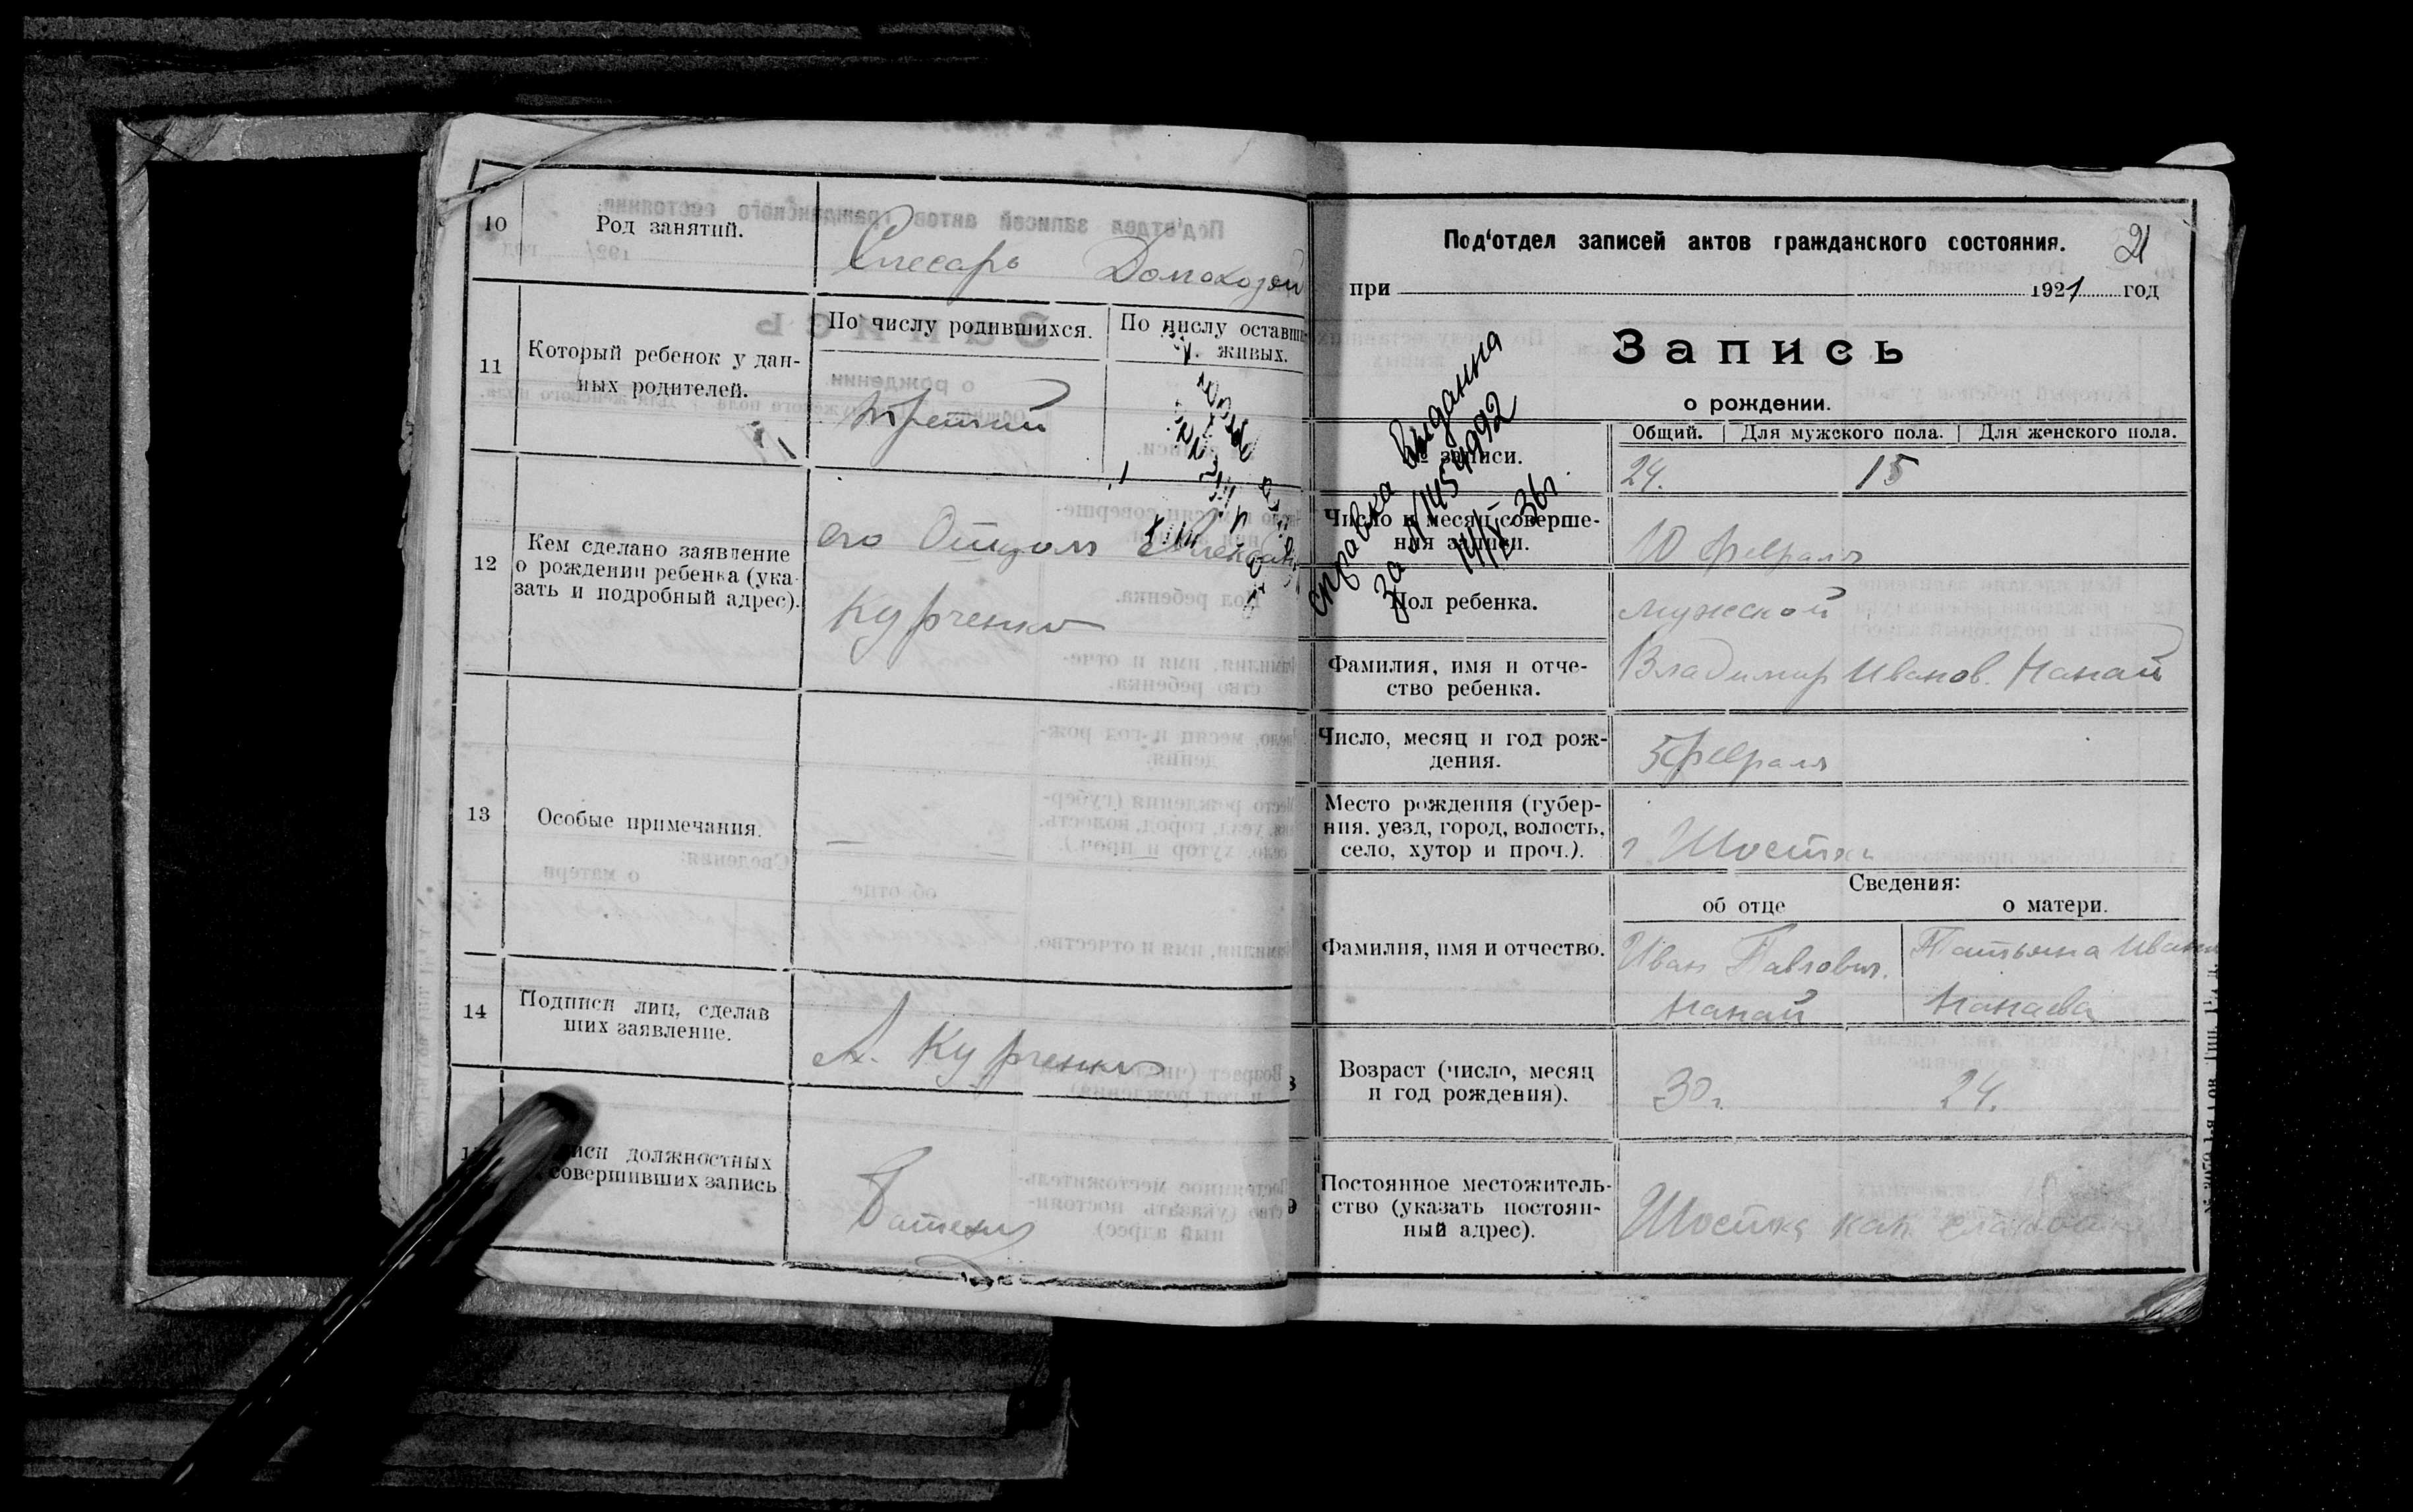 10
Род занятий.
Слесарь
Домохозяй
11
Который ребенок у дан-
ных родителей.
По числу родившихся.
По числу оставши
живых.
Третий
12
Кем сделано заявление
о рождении ребенка (ука-
зать и подробный адрес).
его Отцом
Курченко
13
Особые примечания.
—
—
14
Подписи лиц, сделав
ших заявление.
А. Курченко
должностных
совершивших запись
Под'отдел записей актов гражданского состояния.
21
при
1921 год
Запись
о рождении.
справка выданна
за
36г.
№ записи.
Общий.
Для мужского пола.
Для женского пола.
24.
15
Число и месяц соверше-
ния записи.
10 февраля
Пол ребенка.
мужской
Фамилия, имя и отче-
ство ребенка.
Владимир Иванов. Нанай
Число, месяц и год рож-
дения.
5 февраля
Место рождения (губер-
ния. уезд, город, волость,
село, хутор и проч.).
г Шостка
Сведения:
об отце
о матери.
Фамилия, имя и отчество.
Иван Павлович.
Нанай
Татьяна Иван
Нанаева
Возраст (число, месяц
и год рождения).
30 г.
24.
Постоянное местожитель-
ство (указать постоян-
ный адрес).
Шостка